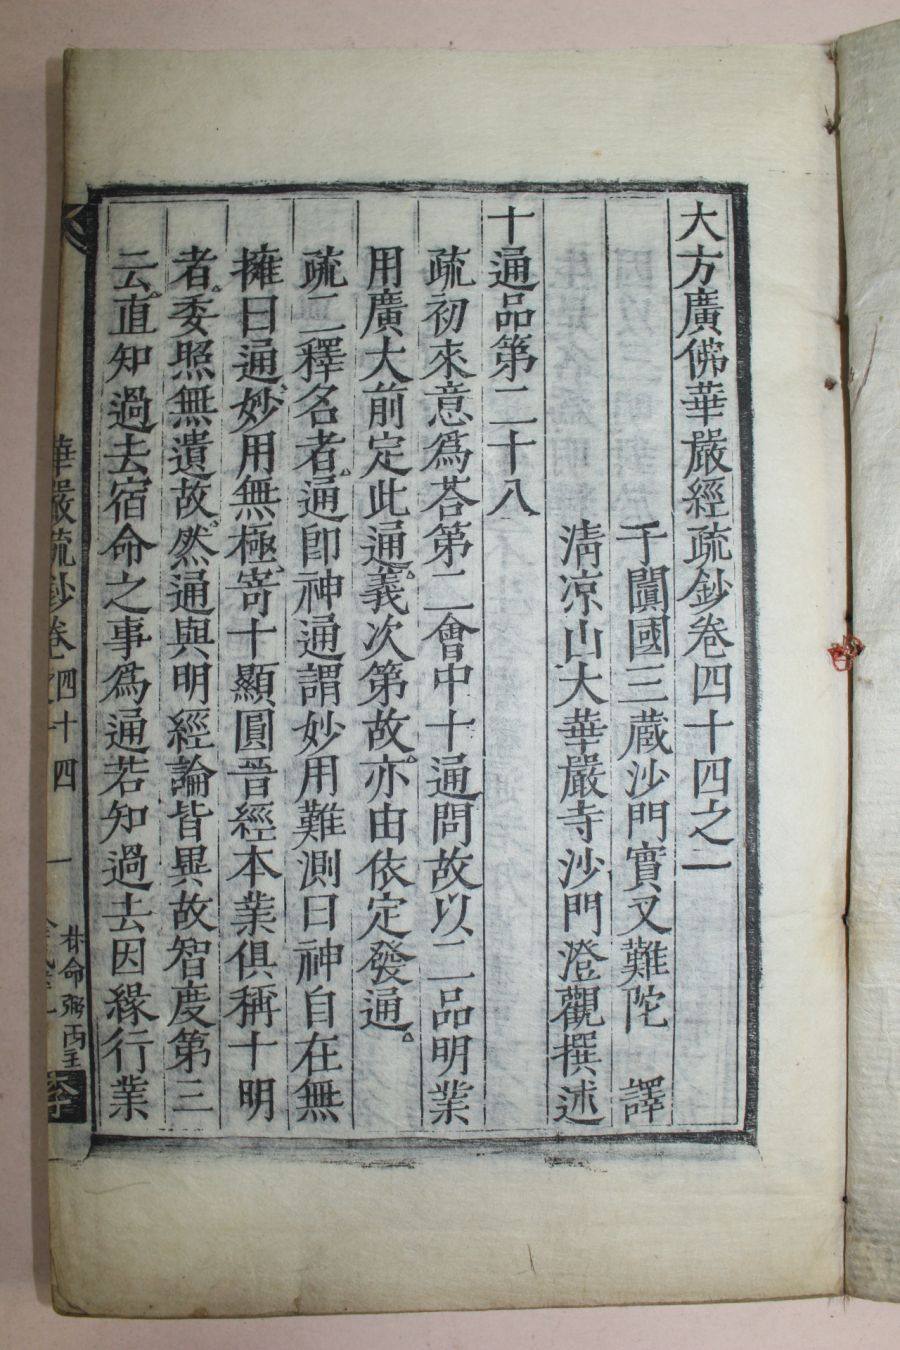 大方廣佛華嚴經疏鈔卷四十四之二
于闐國三藏沙門實叉難陀　譯
清凉山大華嚴寺沙門澄觀撰述
十通品第二十八
疏初來意爲荅第二會中十通問故以二品明業
用廣大前定此通義次第故亦由依定發通
疏二釋名者通即神通謂妙用難測曰神自在無
擁曰通妙用無極寄十顯圓晉經本業俱稱十明
者委照無遺故然通與明經論皆異故智度第三
云直知過去宿命之事爲通若知過去因緣行業
華嚴疏鈔卷四十四　一